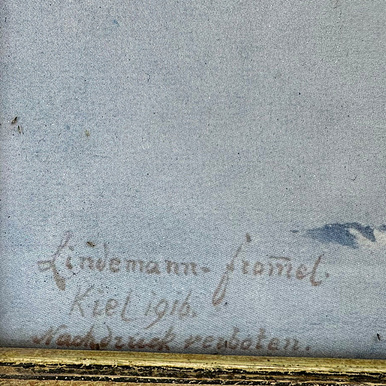 Lindemann-From̅el.
Kiel 1916.
Nachdruck verboten.